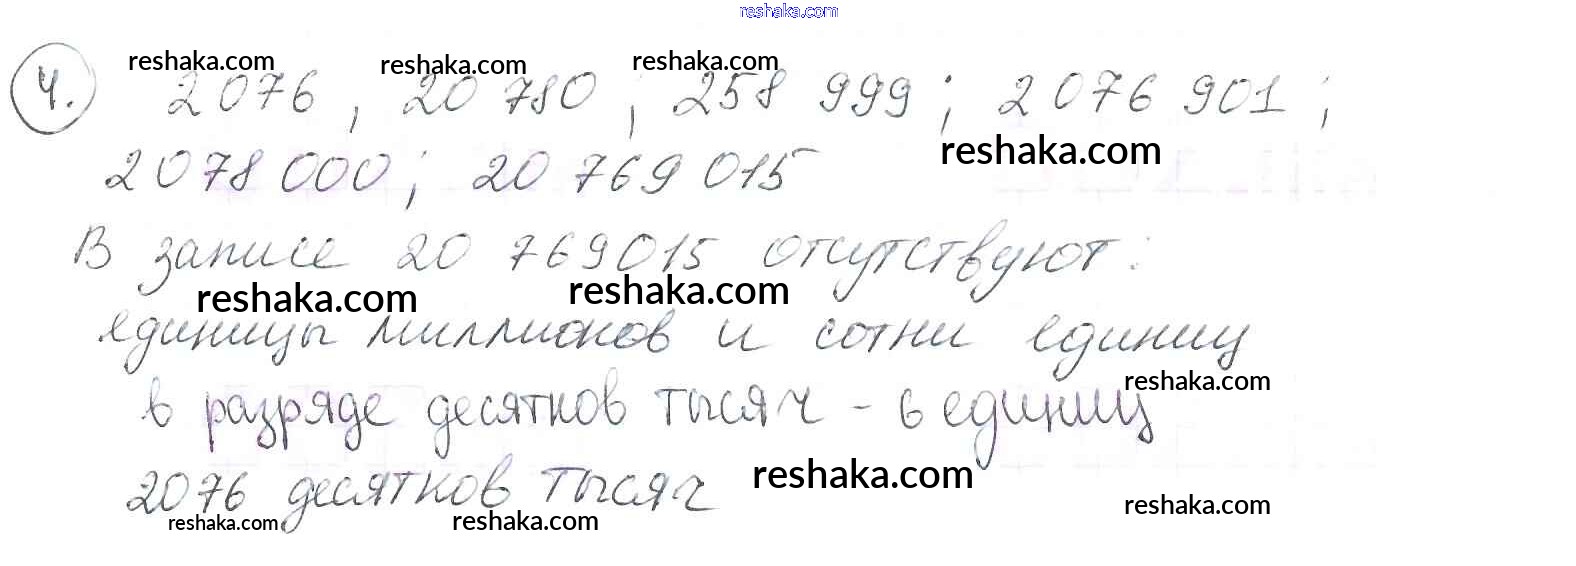 reshaka.com
reshaka.com reshaka.com reshaka.com
4. 2 076 , 20 780 ; 258 999 ; 2 076 901 ;
reshaka.com
2 078 000 ; 20 769 015
В записе 20 769 015 отсутствуют :
reshaka.com reshaka.com
единицы миллионов и сотни единиц
reshaka.com
в разряде десятков тысяч - 6 единиц
reshaka.com
2076 десятков тысяч
reshaka.com reshaka.com reshaka.com